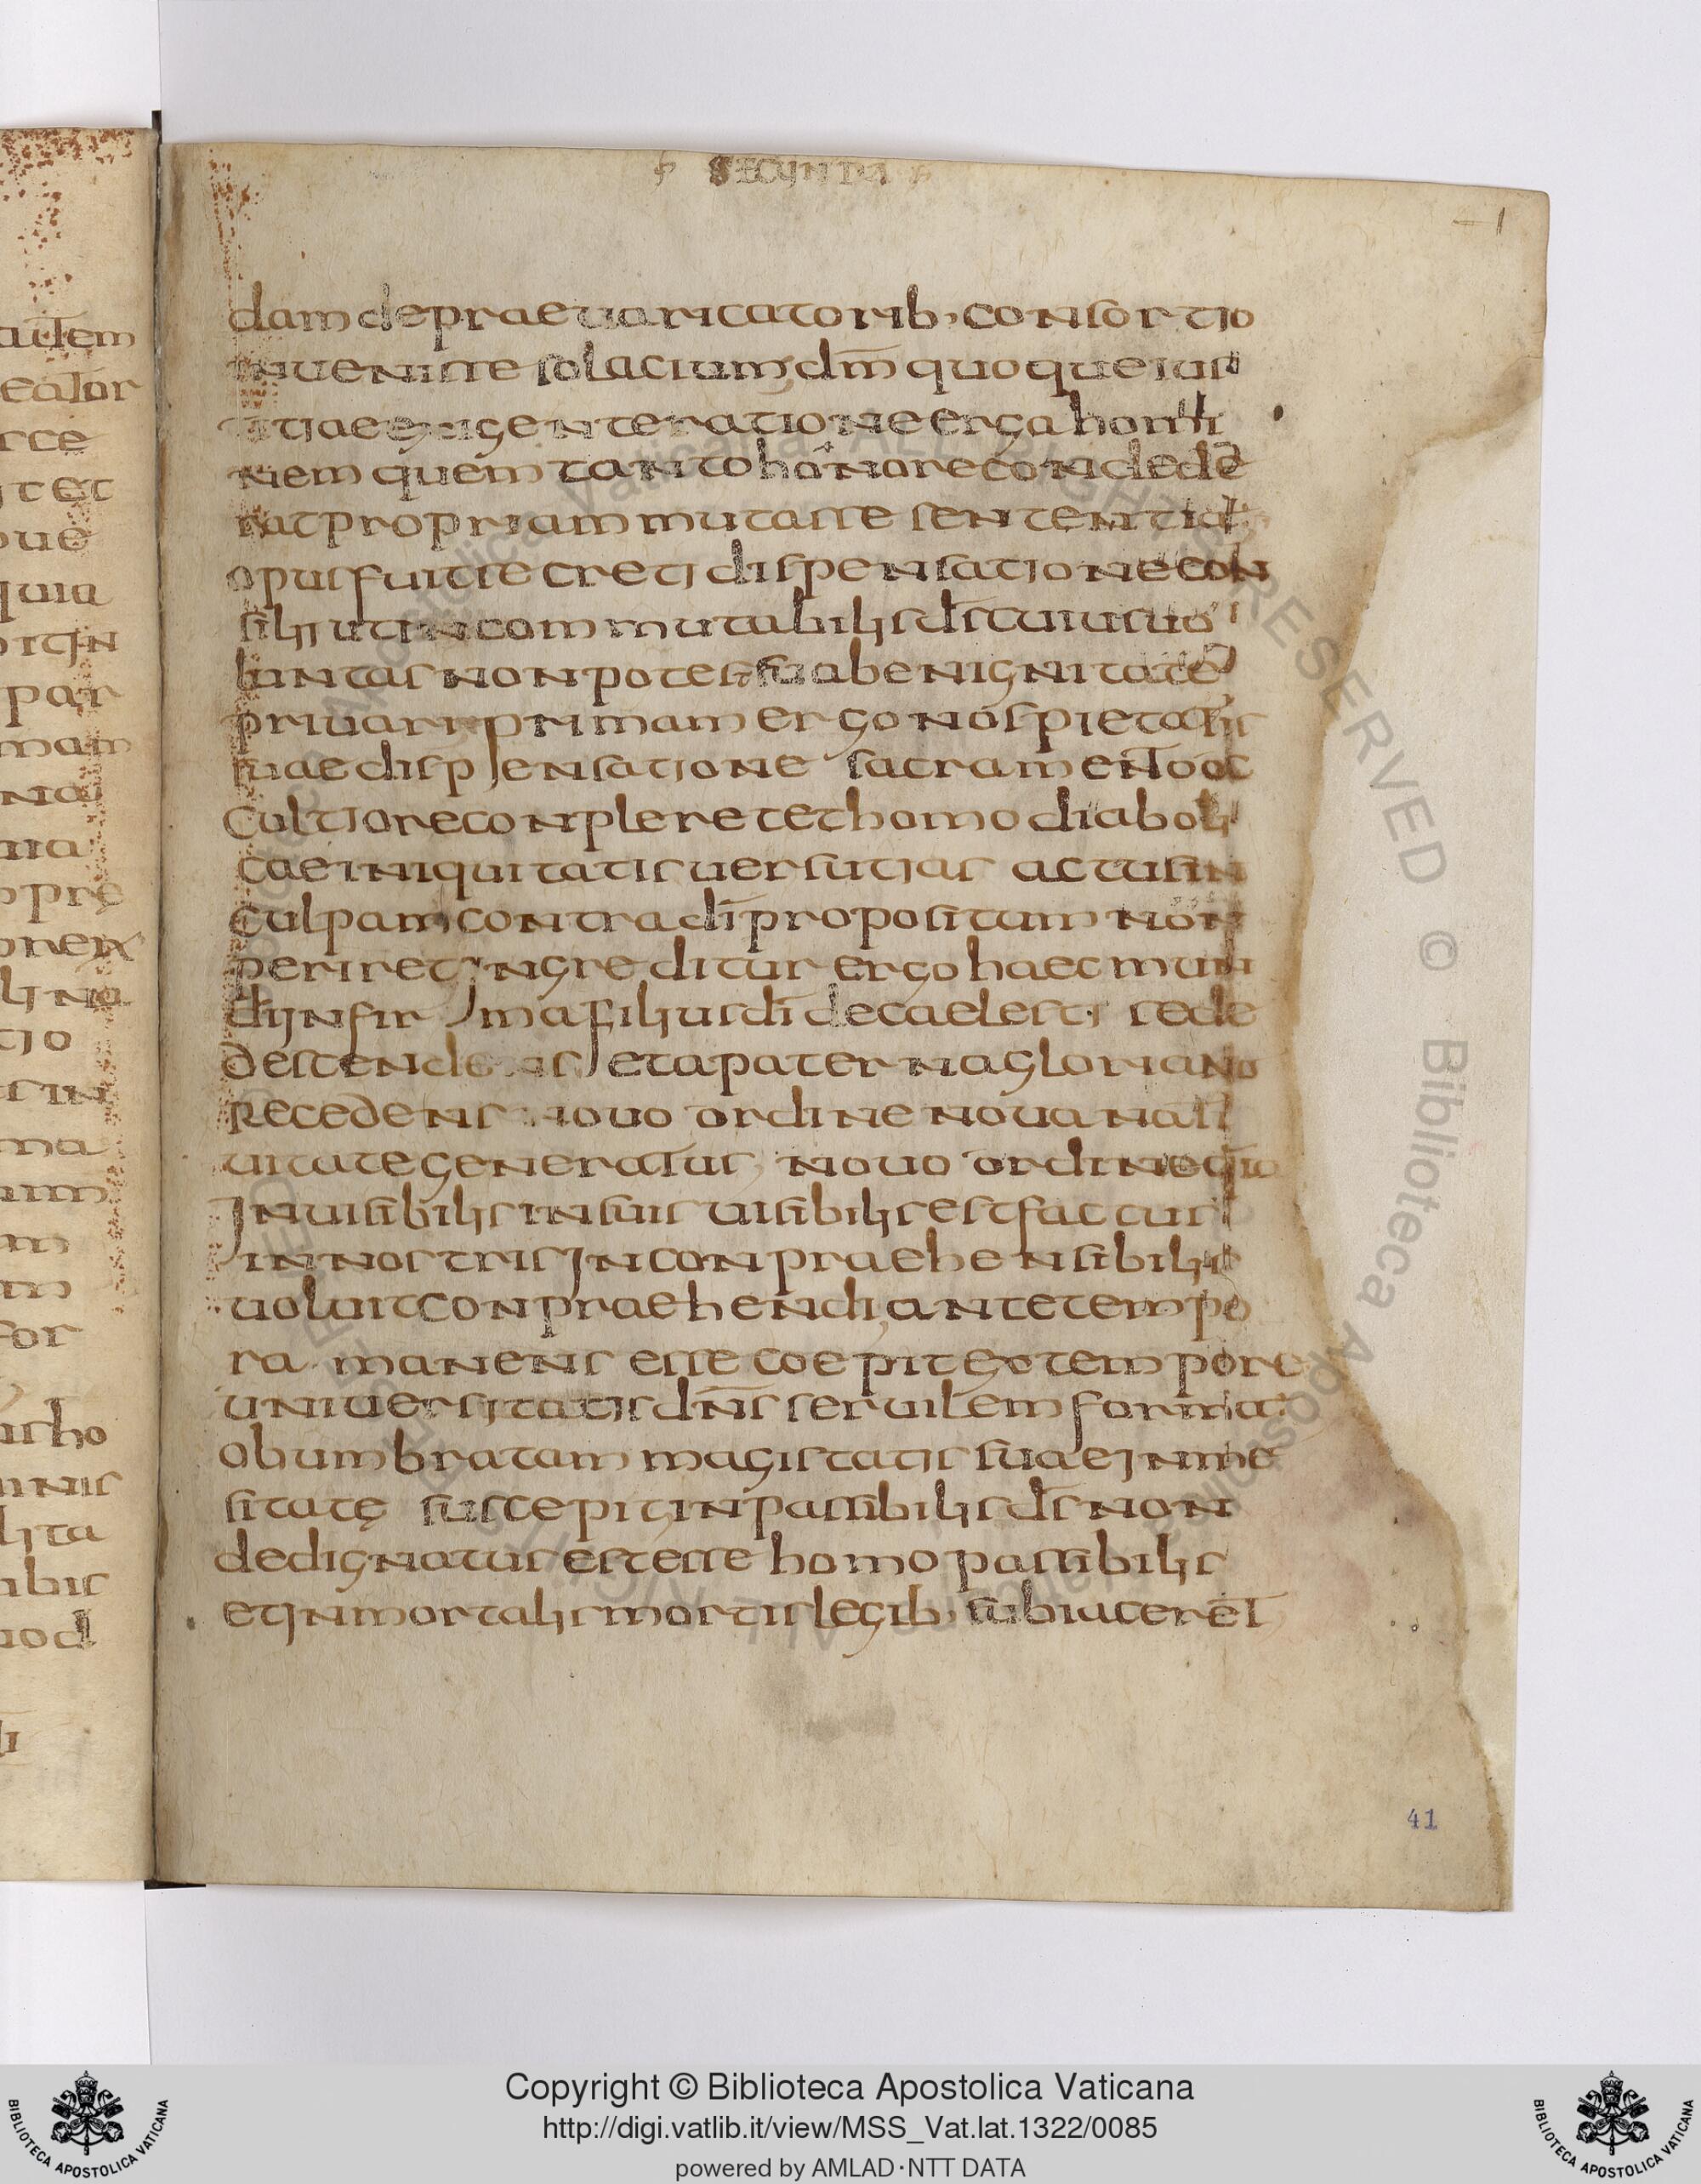 SECUNDA
dam de praeuaricatorib, consortio
inuenisse solacium, dm̄ quoque ius
titiae exigente ratione erga homi
nem quem tanto honore condede
rat propriam mutasse sententiā
opus fuit secreti dispensatione con
silij ut incommutabilis d̄s cuius uo
luntas non potest sua benignitate
priuari primam ergo nos pietatis
suae dispensatione sacramento oc
cultiore conpleret et homo diaboli
cae iniquitatis uersutias actus in
culpam contra dī propositum non
periret ingreditur ergo haec mun
di infirma filius dī de caelesti sede
descendens et a paterna gloria no
recedens nouo ordine noua nati
uitate generatus, nouo ordine q̄a
inuisibilis in suis uisibilis est factus
in nostris inconpraehensibilis
uoluit conpraehendi, ante tempo
ra manens esse coepit ex tempore
uniuersitatis dn̄s seruilem formā
obumbratam magistatis suae inme
sitatę suscepit, inpassibilis d̄s non
dedignatus est esse homo passibilis
et inmortalis mortis legib, subiaceret
41
autem
eator
sce
t et
que
quia
par
mam
na
ma
tio
s in
ma
um
m
m
for
us ho
minis
lita
ibis
uod
Copyright © Biblioteca Apostolica Vaticana
http://digi.vatlib.it/view/MSS_Vat.lat.1322/0085
powered by AMLAD·NTT DATA
BIBLIOTECA APOSTOLICA VATICANA
BIBLIOTECA APOSTOLICA VATICANA